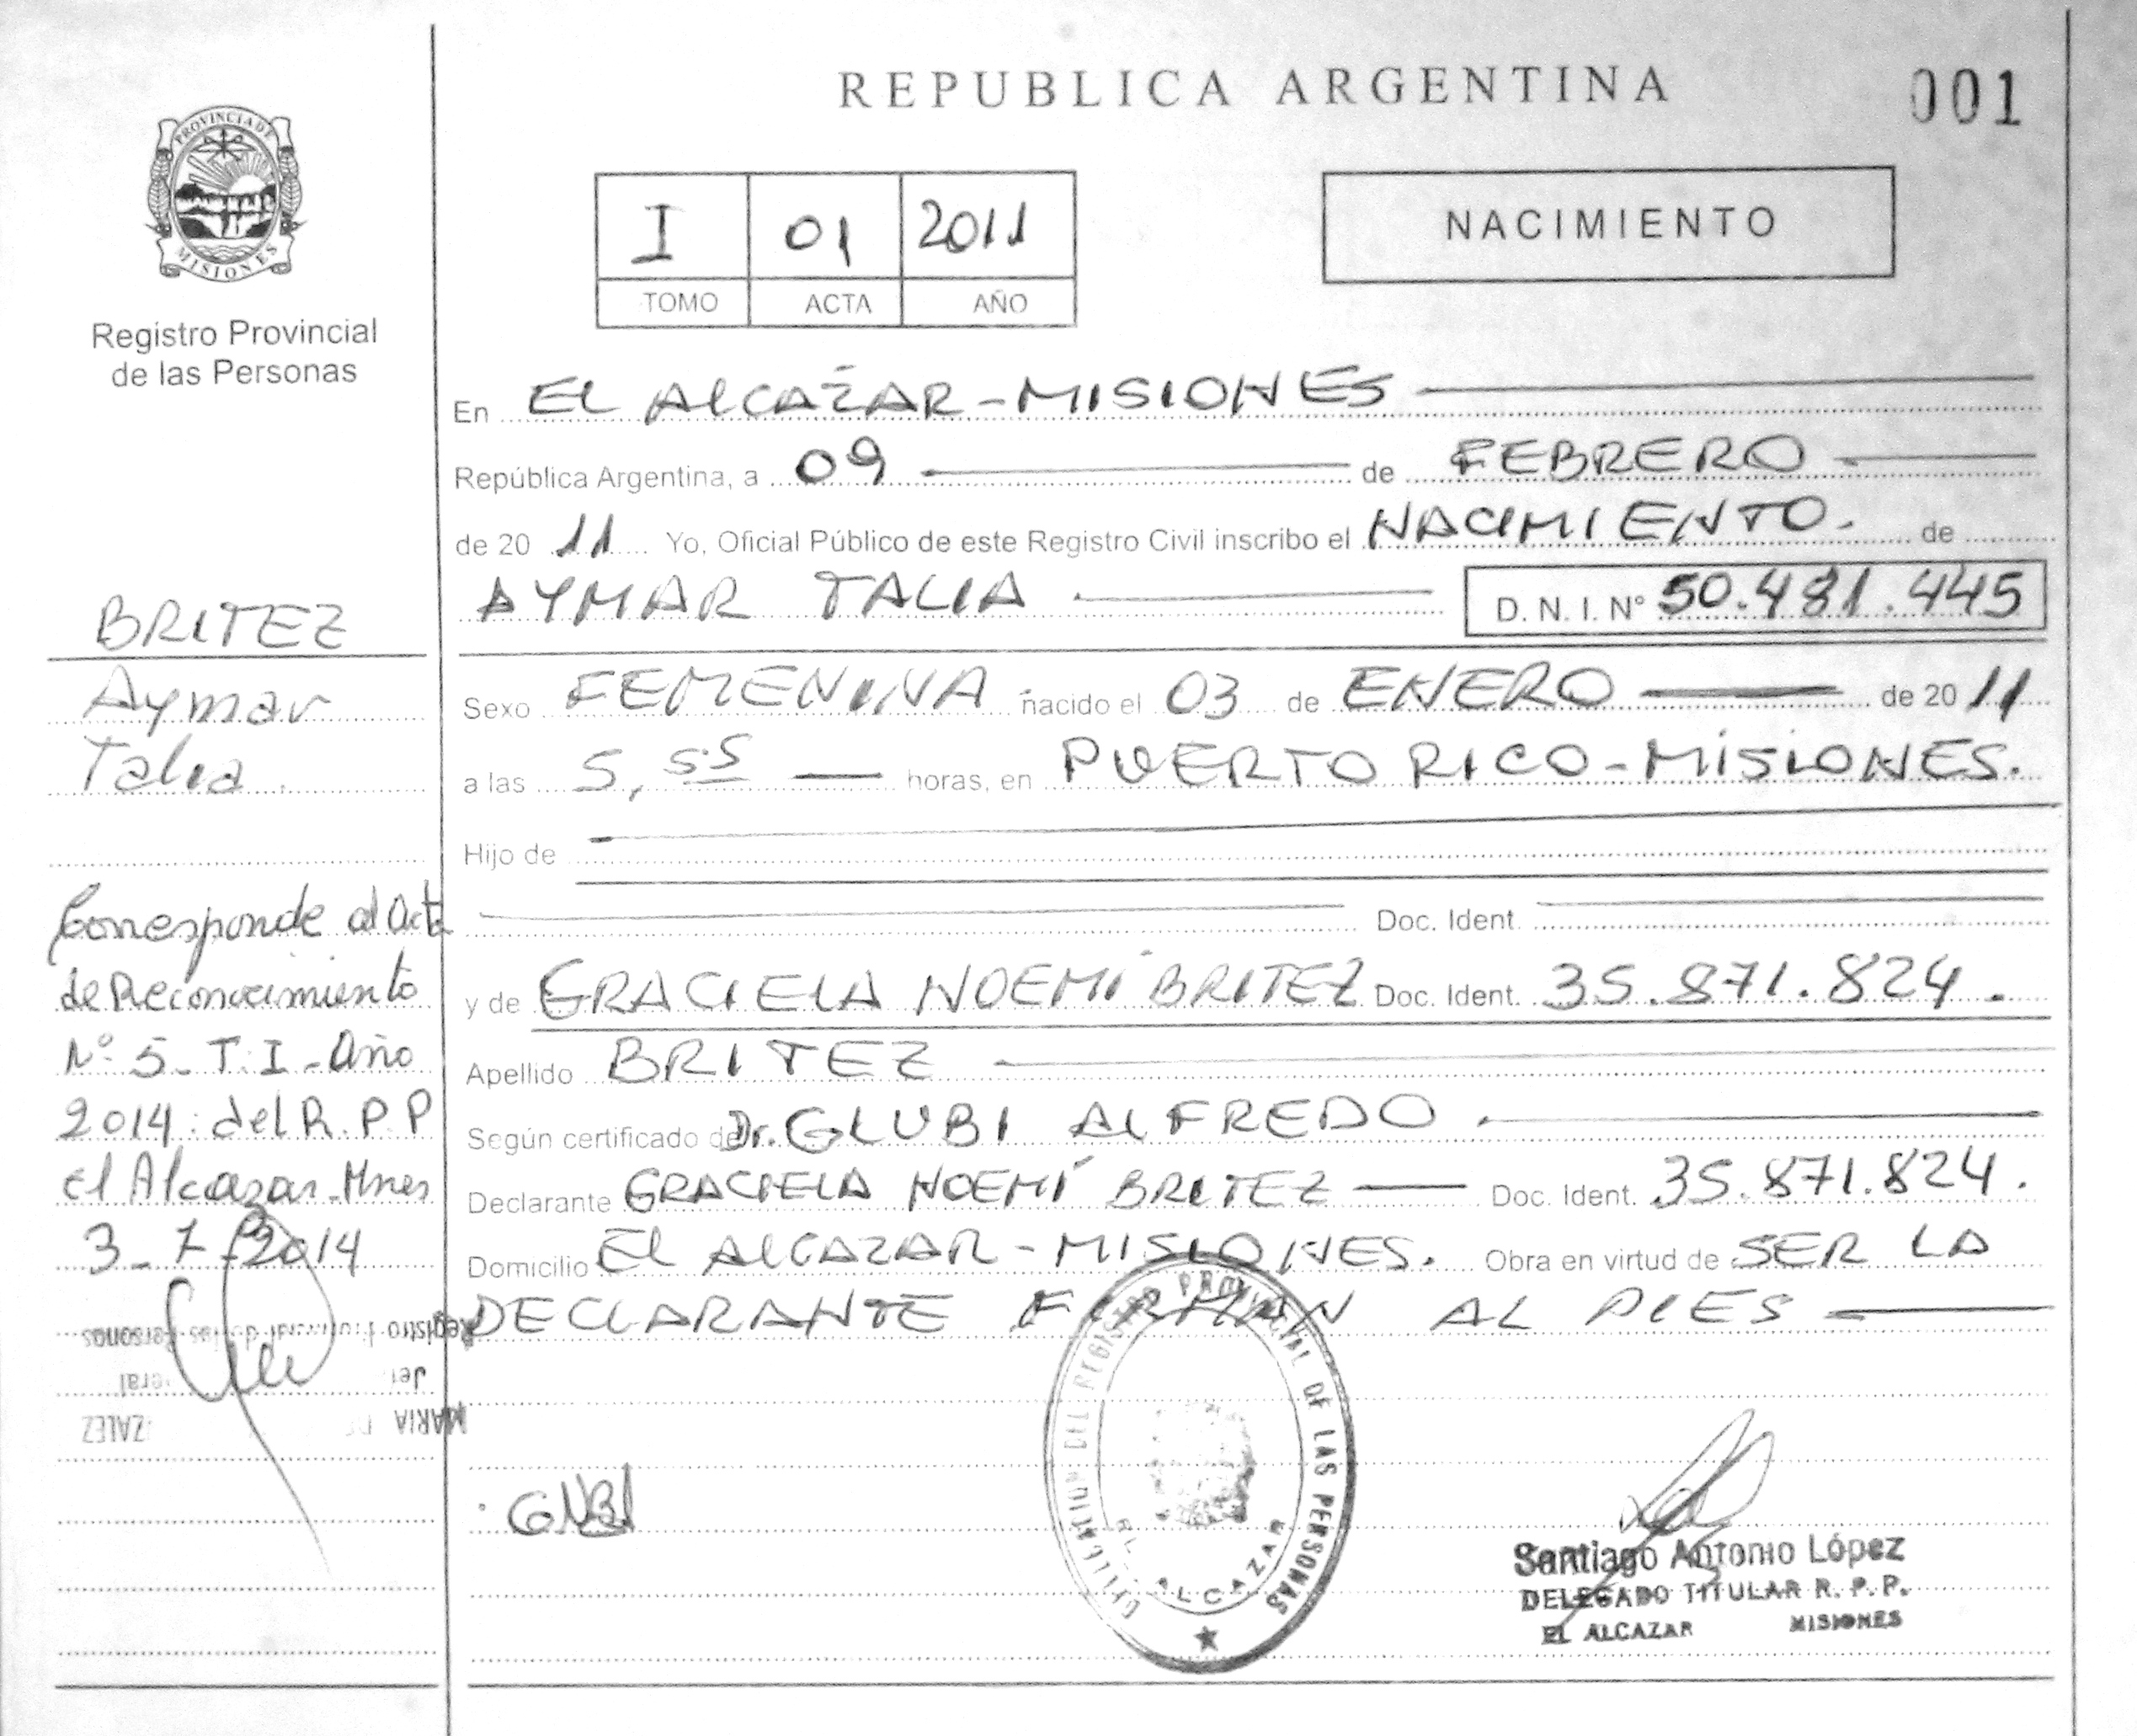 REPUBLICA ARGENTINA
001
PROVINCIA DE
MISIONES
Registro Provincial
de las Personas
I 01 2011
TOMO ACTA AÑO
NACIMIENTO
En EL ALCAZAR - MISIONES
República Argentina, a 09 de FEBRERO
de 20 11 Yo, Oficial Público de este Registro Civil inscribo el NACIMIENTO. de
AYMAR TALIA D. N. I. N° 50.481.445
Sexo FEMENINA nacido el 03 de ENERO de 20 11
a las 5,55 horas, en PUERTO RICO - MISIONES.
Hijo de
Doc. Ident.
y de GRACIELA NOEMÍ BRITEZ Doc. Ident. 35.871.824.
Apellido BRITEZ
Según certificado de Dr. GLUBI ALFREDO.
Declarante GRACIELA NOEMÍ BRITEZ Doc. Ident. 35.871.824.
Domicilio El ALCAZAR - MISIONES. Obra en virtud de SER LA
DECLARANTE FIRMAN AL PIES
BRITEZ
Aymar
Talia
Corresponde al Acta
de Reconocimiento
Nº 5 - T. I - Año
2014 del R. P P
El Alcazar - Mnes
3 - 7 - 2014
Registro Provincial de las Personas
MARIA
GNBI
DELEGACION DEL REGISTRO PROVINCIAL DE LAS PERSONAS
EL ALCAZAR
Santiago Antonio López
DELEGADO TITULAR R. P. P.
EL ALCAZAR MISIONES